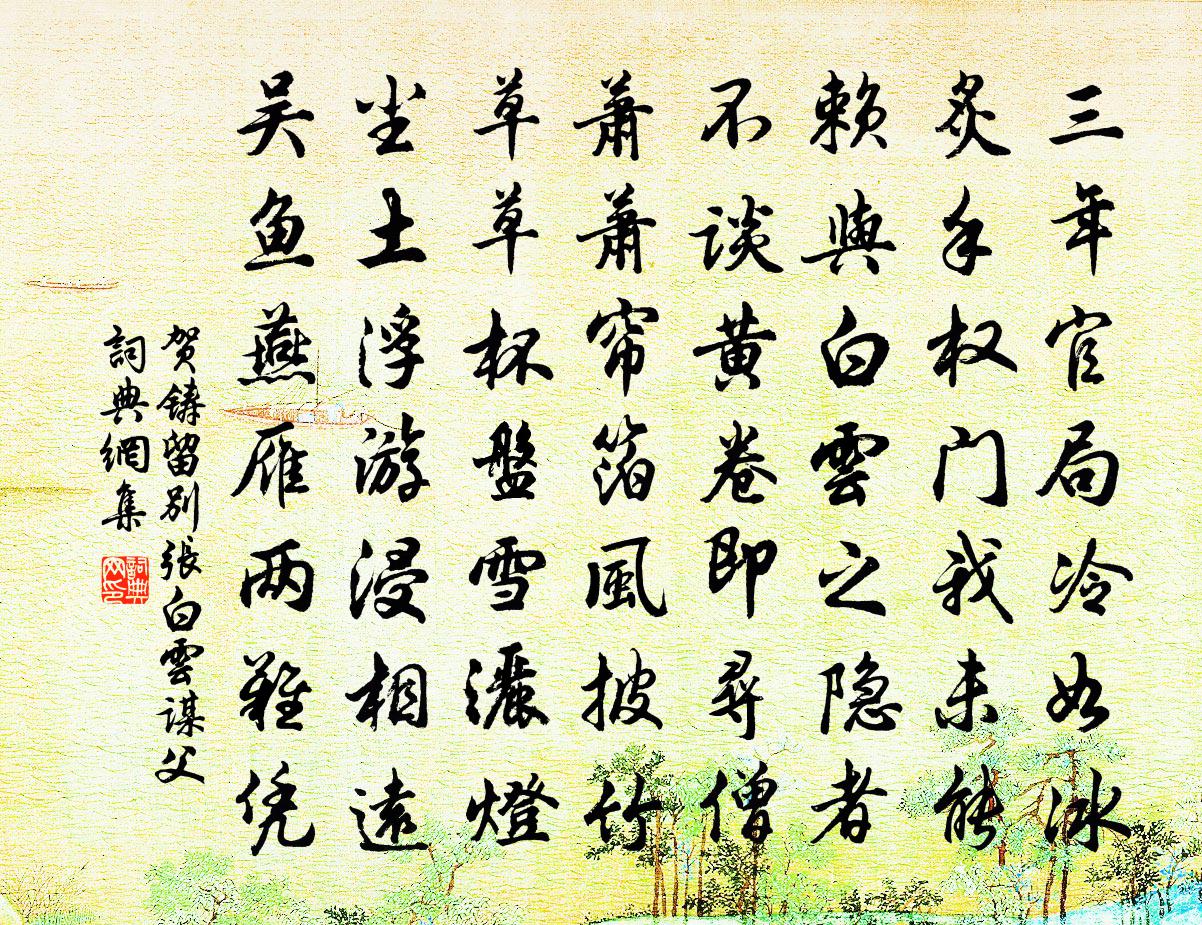 三年官局冷如冰
炙手权门我未能
赖与白雲之隐者
不谈黄卷即尋僧
萧萧帘箔風披竹
草草杯盤雪灑燈
尘土浮游浸相遠
吴鱼燕雁两難凭
贺鋳留别張白雲谋父
詞典網集
詞典网印